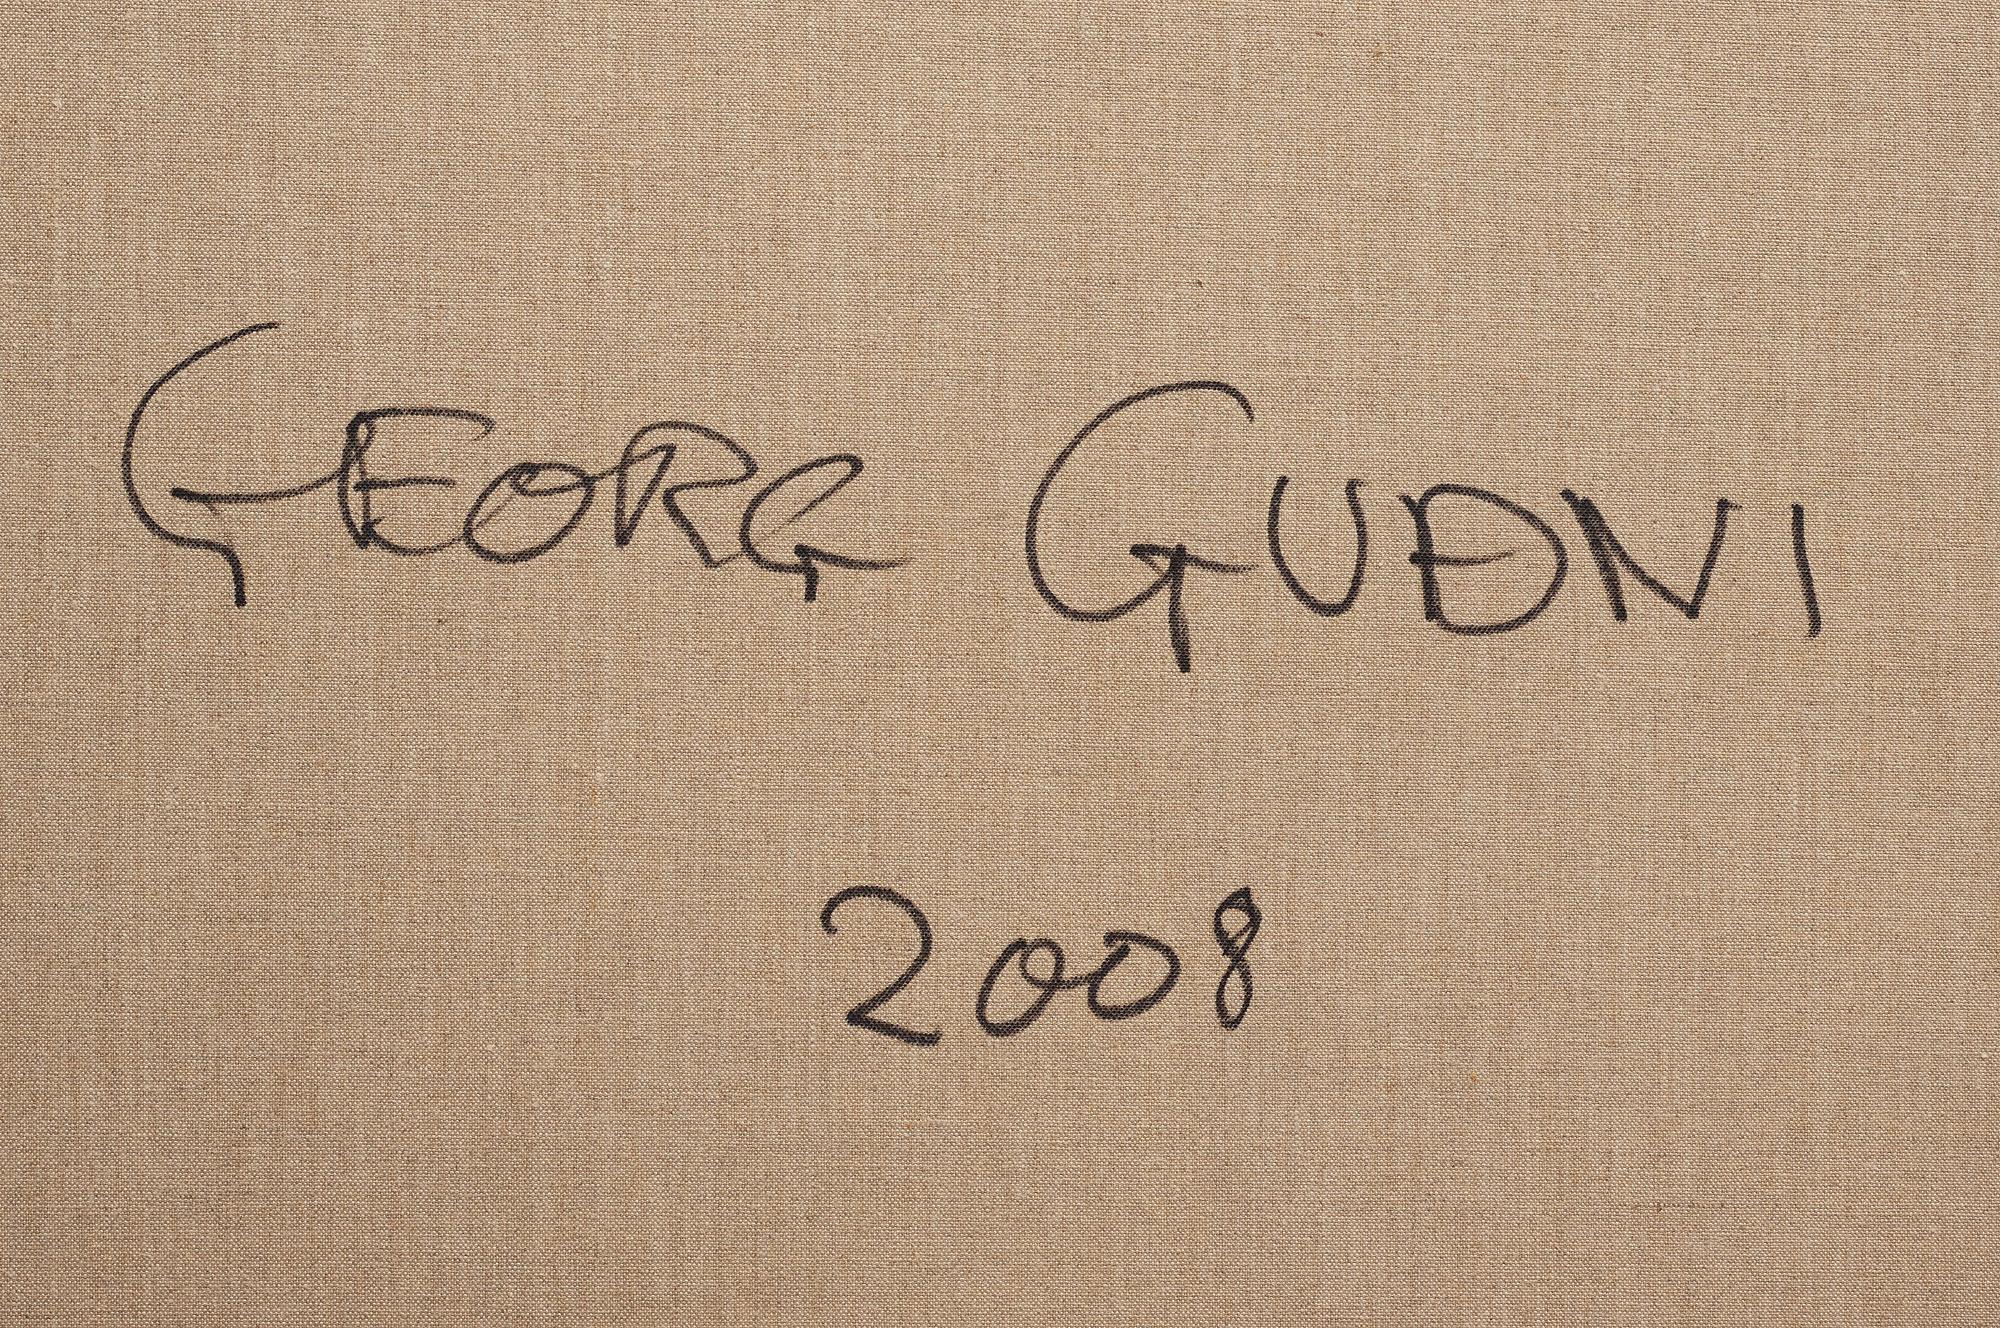 GEORG GUÐNI
2008